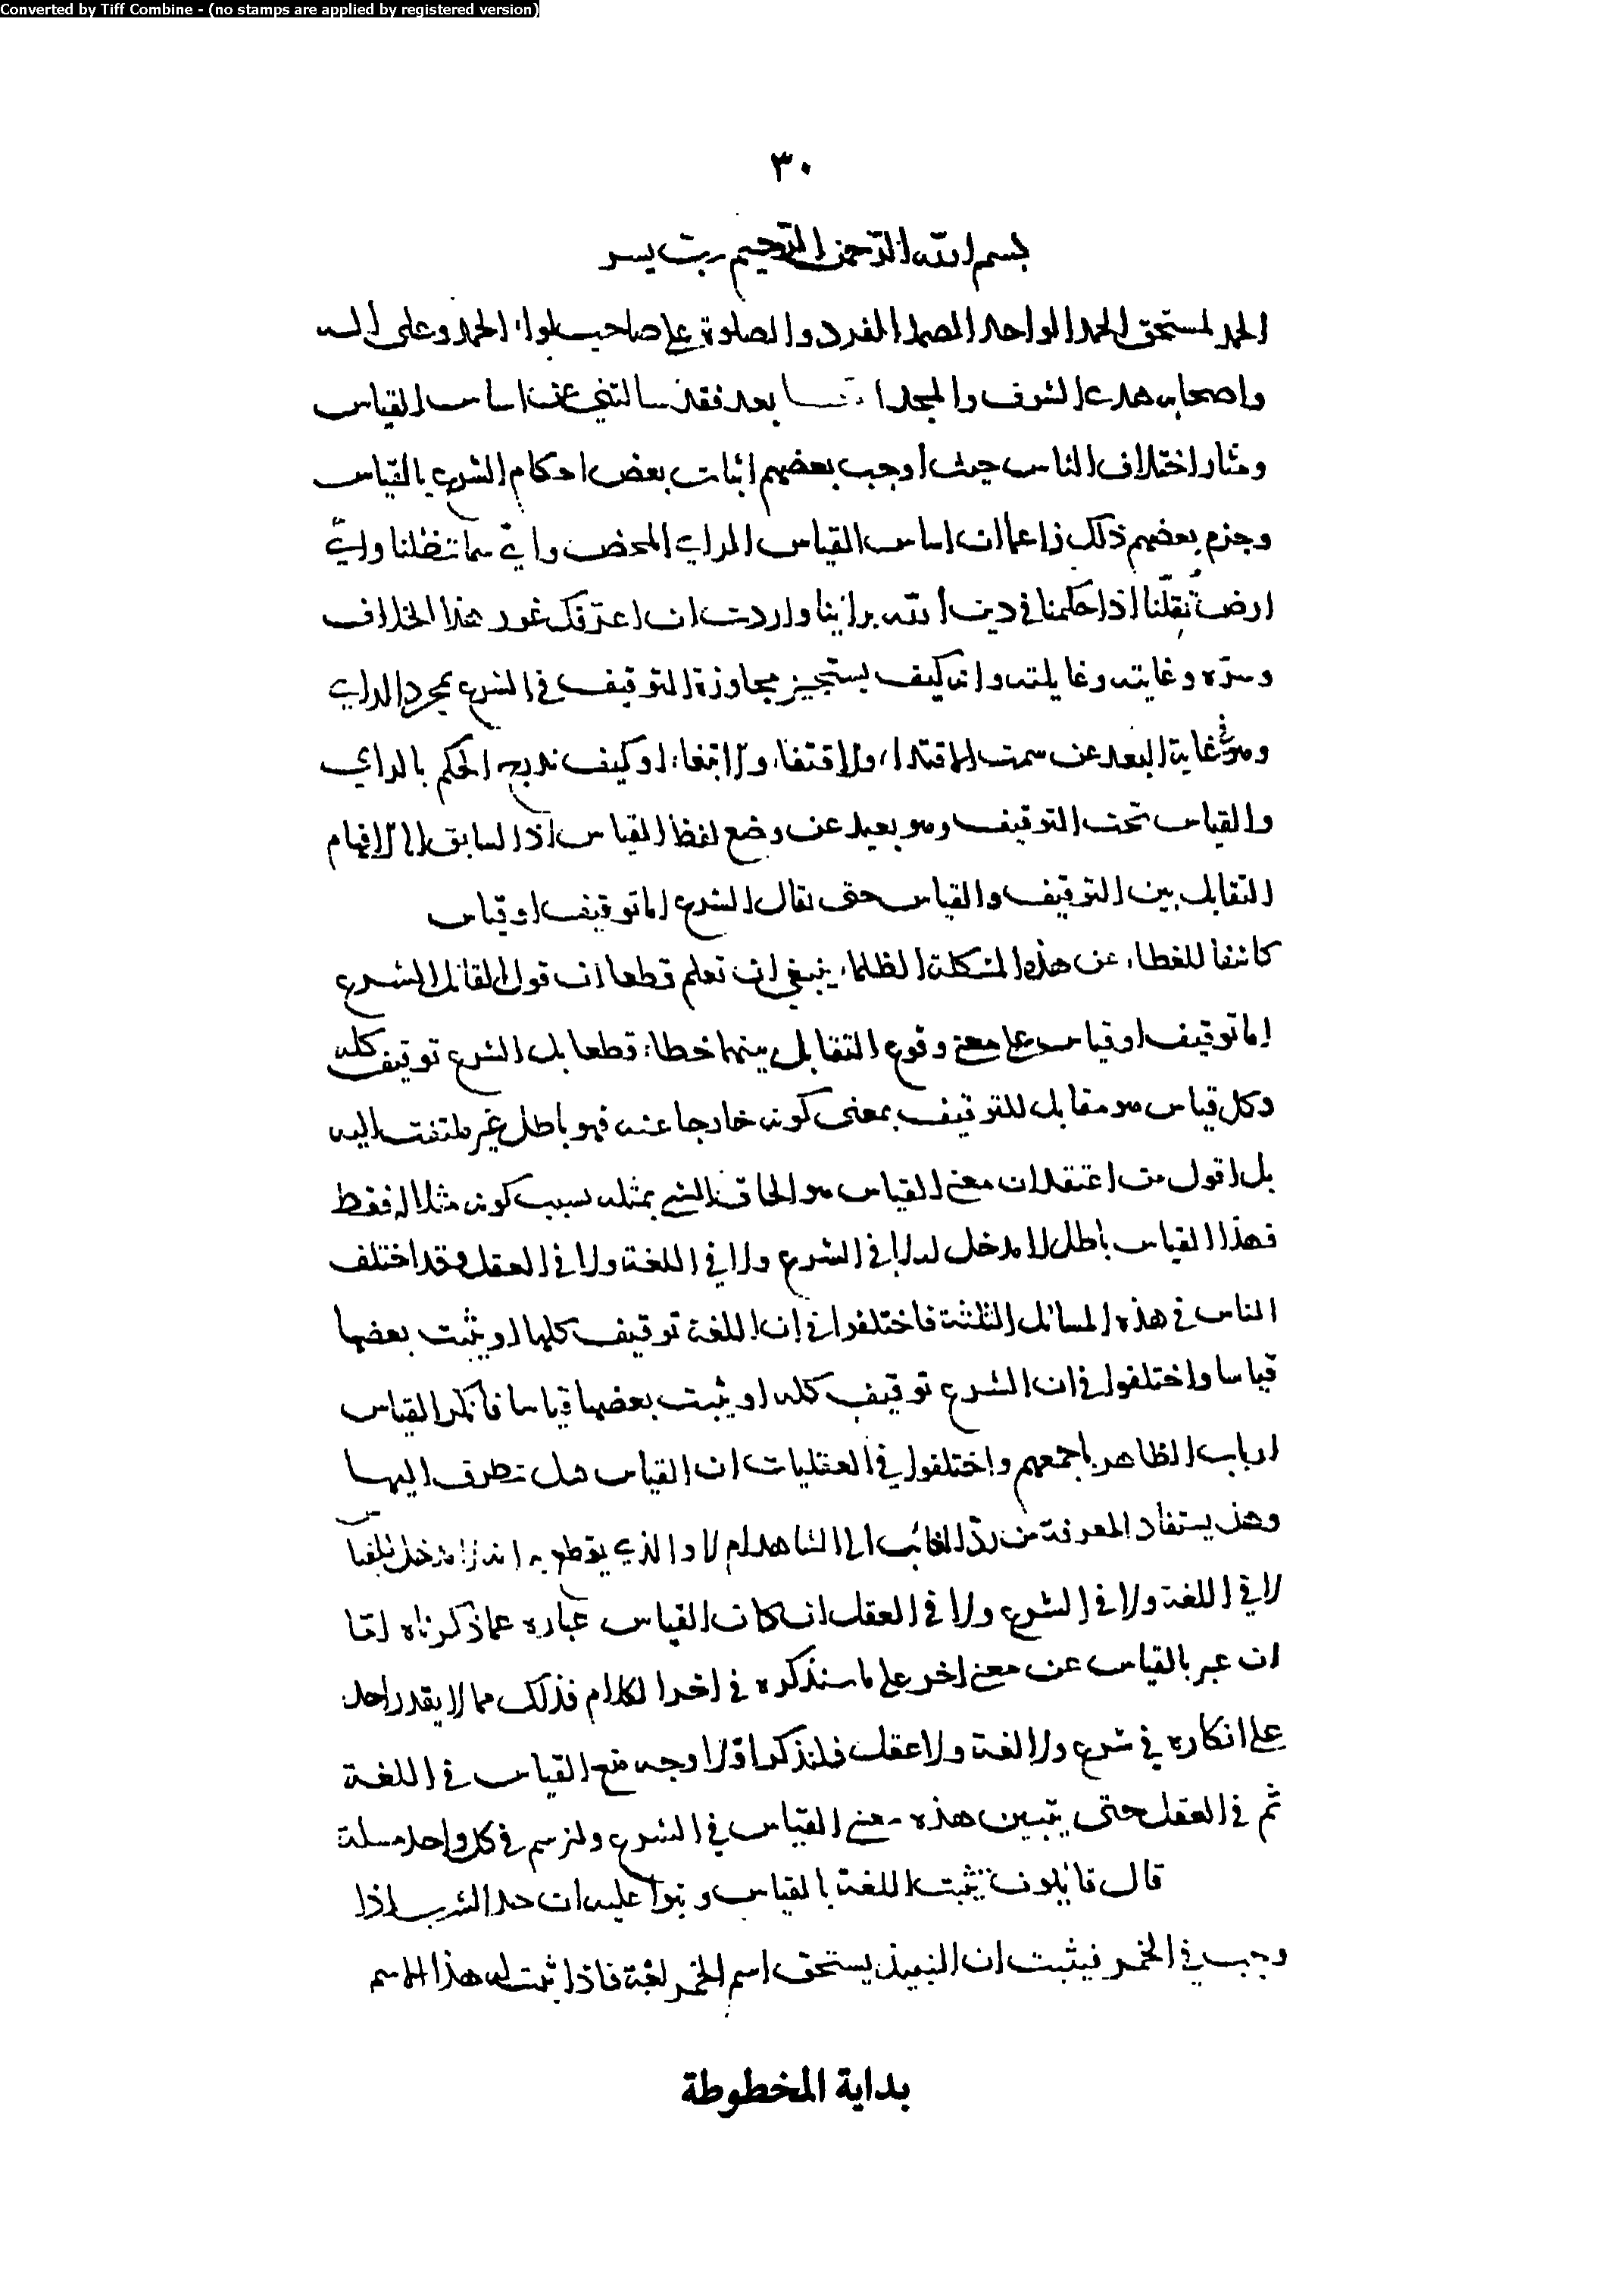 Converted by Tiff Combine - (no stamps are applied by registered version)
٣٠
بسم الله الرحمن الرحيم رب يسر
الحمد لمستحق الحمد الواحد الصمد الفرد والصلوة على صاحب لواء الحمد وعلى اله
واصحابه هداة الشرف والمجد بعد فقد سالتني عن اساس القياس
ومثار اختلاف الناس حيث اوجب بعضهم اثبات بعض احكام الشرع بالقياس
وجزم بعضهم ذلك زاعما ان اساس القياس الراي المحض واي سما تظلنا واي
ارض تقلنا اذا حكمنا في دين الله براينا واردت ان اعرفك غور هذا الخلاف
وسره وغايته وغايلته وانه كيف يستجيز مجاوزة التوقيف في الشرع بمجرد الراي
وهو في غاية البعد عن سمت الاقتداء والاقتفاء والاتبغاء او كيف ندرج الحكم بالراي
والقياس تحت التوقيف وهو بعيد عن وضع لفظ القياس اذ السابق الى الافهام
التقابل بين التوقيف والقياس حتى نقال الشرع اما توقيف او قياس
كاشفا للغطاء عن هذه المشكلة الظلماء ينبغي ان تعلم قطعا ان قول القائل الشرع
اما توقيف او قياس على معنى وقوع التقابل بينهما خطاء قطعا بل الشرع توقيف كله
وكل قياس هو مقابل للتوقيف بمعنى كونه خارجا عنه فهو باطل غير ملتفت اليه
بل اقول من اعتقد ان معنى القياس هو الحاق الشي بمثله بسبب كونه مثلا له فقط
فهذا القياس باطل لا مدخل له لا في الشرع ولا في اللغة ولا في العقل وقد اختلف
الناس في هذه المسائل الثلثة فاختلفوا في ان اللغة توقيف كلها او يثبت بعضها
قياسا واختلفوا في ان الشرع توقيف كله او يثبت بعضها قياسا فانكر القياس
ارباب الظاهر باجمعهم واختلفوا في العقليات ان القياس هل تطرق اليها
وهل يستفاد المعرفة من رد الغائب الى الشاهد ام لا والذي يقطع به انه لا مدخل للقياس
لا في اللغة ولا في الشرع ولا في العقل ان كان القياس عباره عما ذكرناه امّا
ان عبر بالقياس عن معنى اخر على ما سنذكره في اخر الكلام فذلك مما لا يقدر احد
على انكاره في شرع ولا لغة ولا عقل فلنذكر اوّلا وجه منع القياس في اللغة
ثم في العقل حتى يتبين هذه معنى القياس في الشرع ولنرسم في كل واحد مسلة
قال قائلون تثبت اللغة بالقياس وبنوا عليه ان حد الشرب اذا
وجب في الخمر فيثبت ان النبيذ يستحق اسم الخمر لغة فاذا ثبت له هذا الاسم
بداية المخطوطة